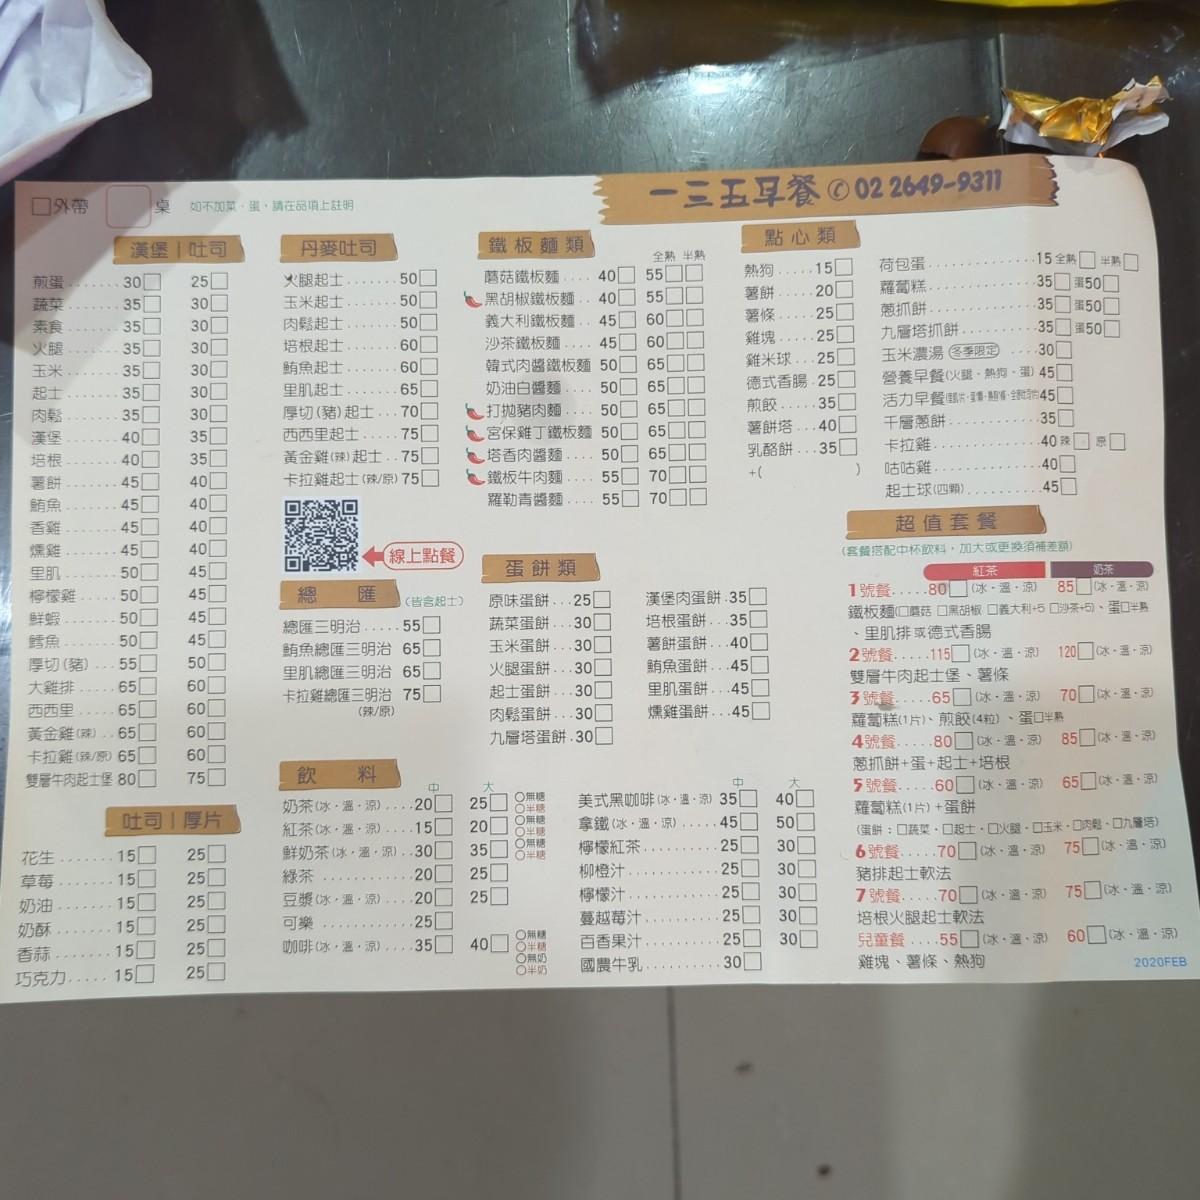 外帶 桌 如不加菜、蛋，請在品項上註明
一三五早餐 02 2649-9311
漢堡|吐司
煎蛋 30 25
蔬菜 35 30
素食 35 30
火腿 35 30
玉米 35 30
起士 35 30
肉鬆 35 30
漢堡 40 35
培根 40 35
薯餅 45 40
鮪魚 45 40
香雞 45 40
燻雞 45 40
里肌 50 45
檸檬雞 50 45
鮮蝦 50 45
鱈魚 50 45
厚切(豬) 55 50
大雞排 65 60
西西里 65 60
黃金雞(辣) 65 60
卡拉雞(辣/原) 65 60
雙層牛肉起士堡 80 75
吐司|厚片
花生 15 25
草莓 15 25
奶油 15 25
奶酥 15 25
香蒜 15 25
巧克力 15 25
丹麥吐司
火腿起士 50
玉米起士 50
肉鬆起士 50
培根起士 60
鮪魚起士 60
里肌起士 65
厚切(豬)起士 70
西西里起士 75
黃金雞(辣)起士 75
卡拉雞起士(辣/原) 75
線上點餐
總匯 (皆含起士)
總匯三明治 55
鮪魚總匯三明治 65
里肌總匯三明治 65
卡拉雞總匯三明治 75
(辣/原)
鐵板麵類
全熟 半熟
蘑菇鐵板麵 40 55
黑胡椒鐵板麵 40 55
義大利鐵板麵 45 60
沙茶鐵板麵 45 60
韓式肉醬鐵板麵 50 65
奶油白醬麵 50 65
打拋豬肉麵 50 65
宮保雞丁鐵板麵 50 65
塔香肉醬麵 50 65
鐵板牛肉麵 55 70
羅勒青醬麵 55 70
蛋餅類
原味蛋餅 25
蔬菜蛋餅 30
玉米蛋餅 30
火腿蛋餅 30
起士蛋餅 30
肉鬆蛋餅 30
九層塔蛋餅 30
漢堡肉蛋餅 35
培根蛋餅 35
薯餅蛋餅 40
鮪魚蛋餅 45
里肌蛋餅 45
燻雞蛋餅 45
飲料
中 大
奶茶(冰・溫・涼) 20 25 無糖 半糖
紅茶(冰・溫・涼) 15 20 無糖 半糖
鮮奶茶(冰・溫・涼) 30 35 無糖 半糖
綠茶 20 25
豆漿(冰・溫・涼) 20 25
可樂 25
咖啡(冰・溫・涼) 35 40 無糖 半糖 無奶 半奶
中 大
美式黑咖啡(冰・溫・涼) 35 40
拿鐵(冰・溫・涼) 45 50
檸檬紅茶 25 30
柳橙汁 25 30
檸檬汁 25 30
蔓越莓汁 25 30
百香果汁 25 30
國農牛乳 30
點心類
熱狗 15
薯餅 20
薯條 25
雞塊 25
雞米球 25
德式香腸 25
煎餃 35
薯餅塔 40
乳酪餅 35
+( )
荷包蛋 15 全熟 半熟
蘿蔔糕 35 蛋50
蔥抓餅 35 蛋50
九層塔抓餅 35 蛋50
玉米濃湯 冬季限定 30
營養早餐(火腿、熱狗、蛋) 45
活力早餐 45
千層蔥餅 35
卡拉雞 40 辣 原
咕咕雞 40
起士球(四顆) 45
超值套餐
(套餐搭配中杯飲料，加大或更換須補差額)
紅茶 奶茶
1號餐 80 (冰・溫・涼) 85 (冰・溫・涼)
鐵板麵(□蘑菇 □黑胡椒 □義大利+5 □沙茶+5)、蛋□半熟
、里肌排或德式香腸
2號餐 115 (冰・溫・涼) 120 (冰・溫・涼)
雙層牛肉起士堡、薯條
3號餐 65 (冰・溫・涼) 70 (冰・溫・涼)
蘿蔔糕(1片)、煎餃(4粒)、蛋□半熟
4號餐 80 (冰・溫・涼) 85 (冰・溫・涼)
蔥抓餅+蛋+起士+培根
5號餐 60 (冰・溫・涼) 65 (冰・溫・涼)
蘿蔔糕(1片)+蛋餅
(蛋餅：□蔬菜、□起士、□火腿、□玉米、□肉鬆、□九層塔)
6號餐 70 (冰・溫・涼) 75 (冰・溫・涼)
豬排起士軟法
7號餐 70 (冰・溫・涼) 75 (冰・溫・涼)
培根火腿起士軟法
兒童餐 55 (冰・溫・涼) 60 (冰・溫・涼)
雞塊、薯條、熱狗
2020FEB